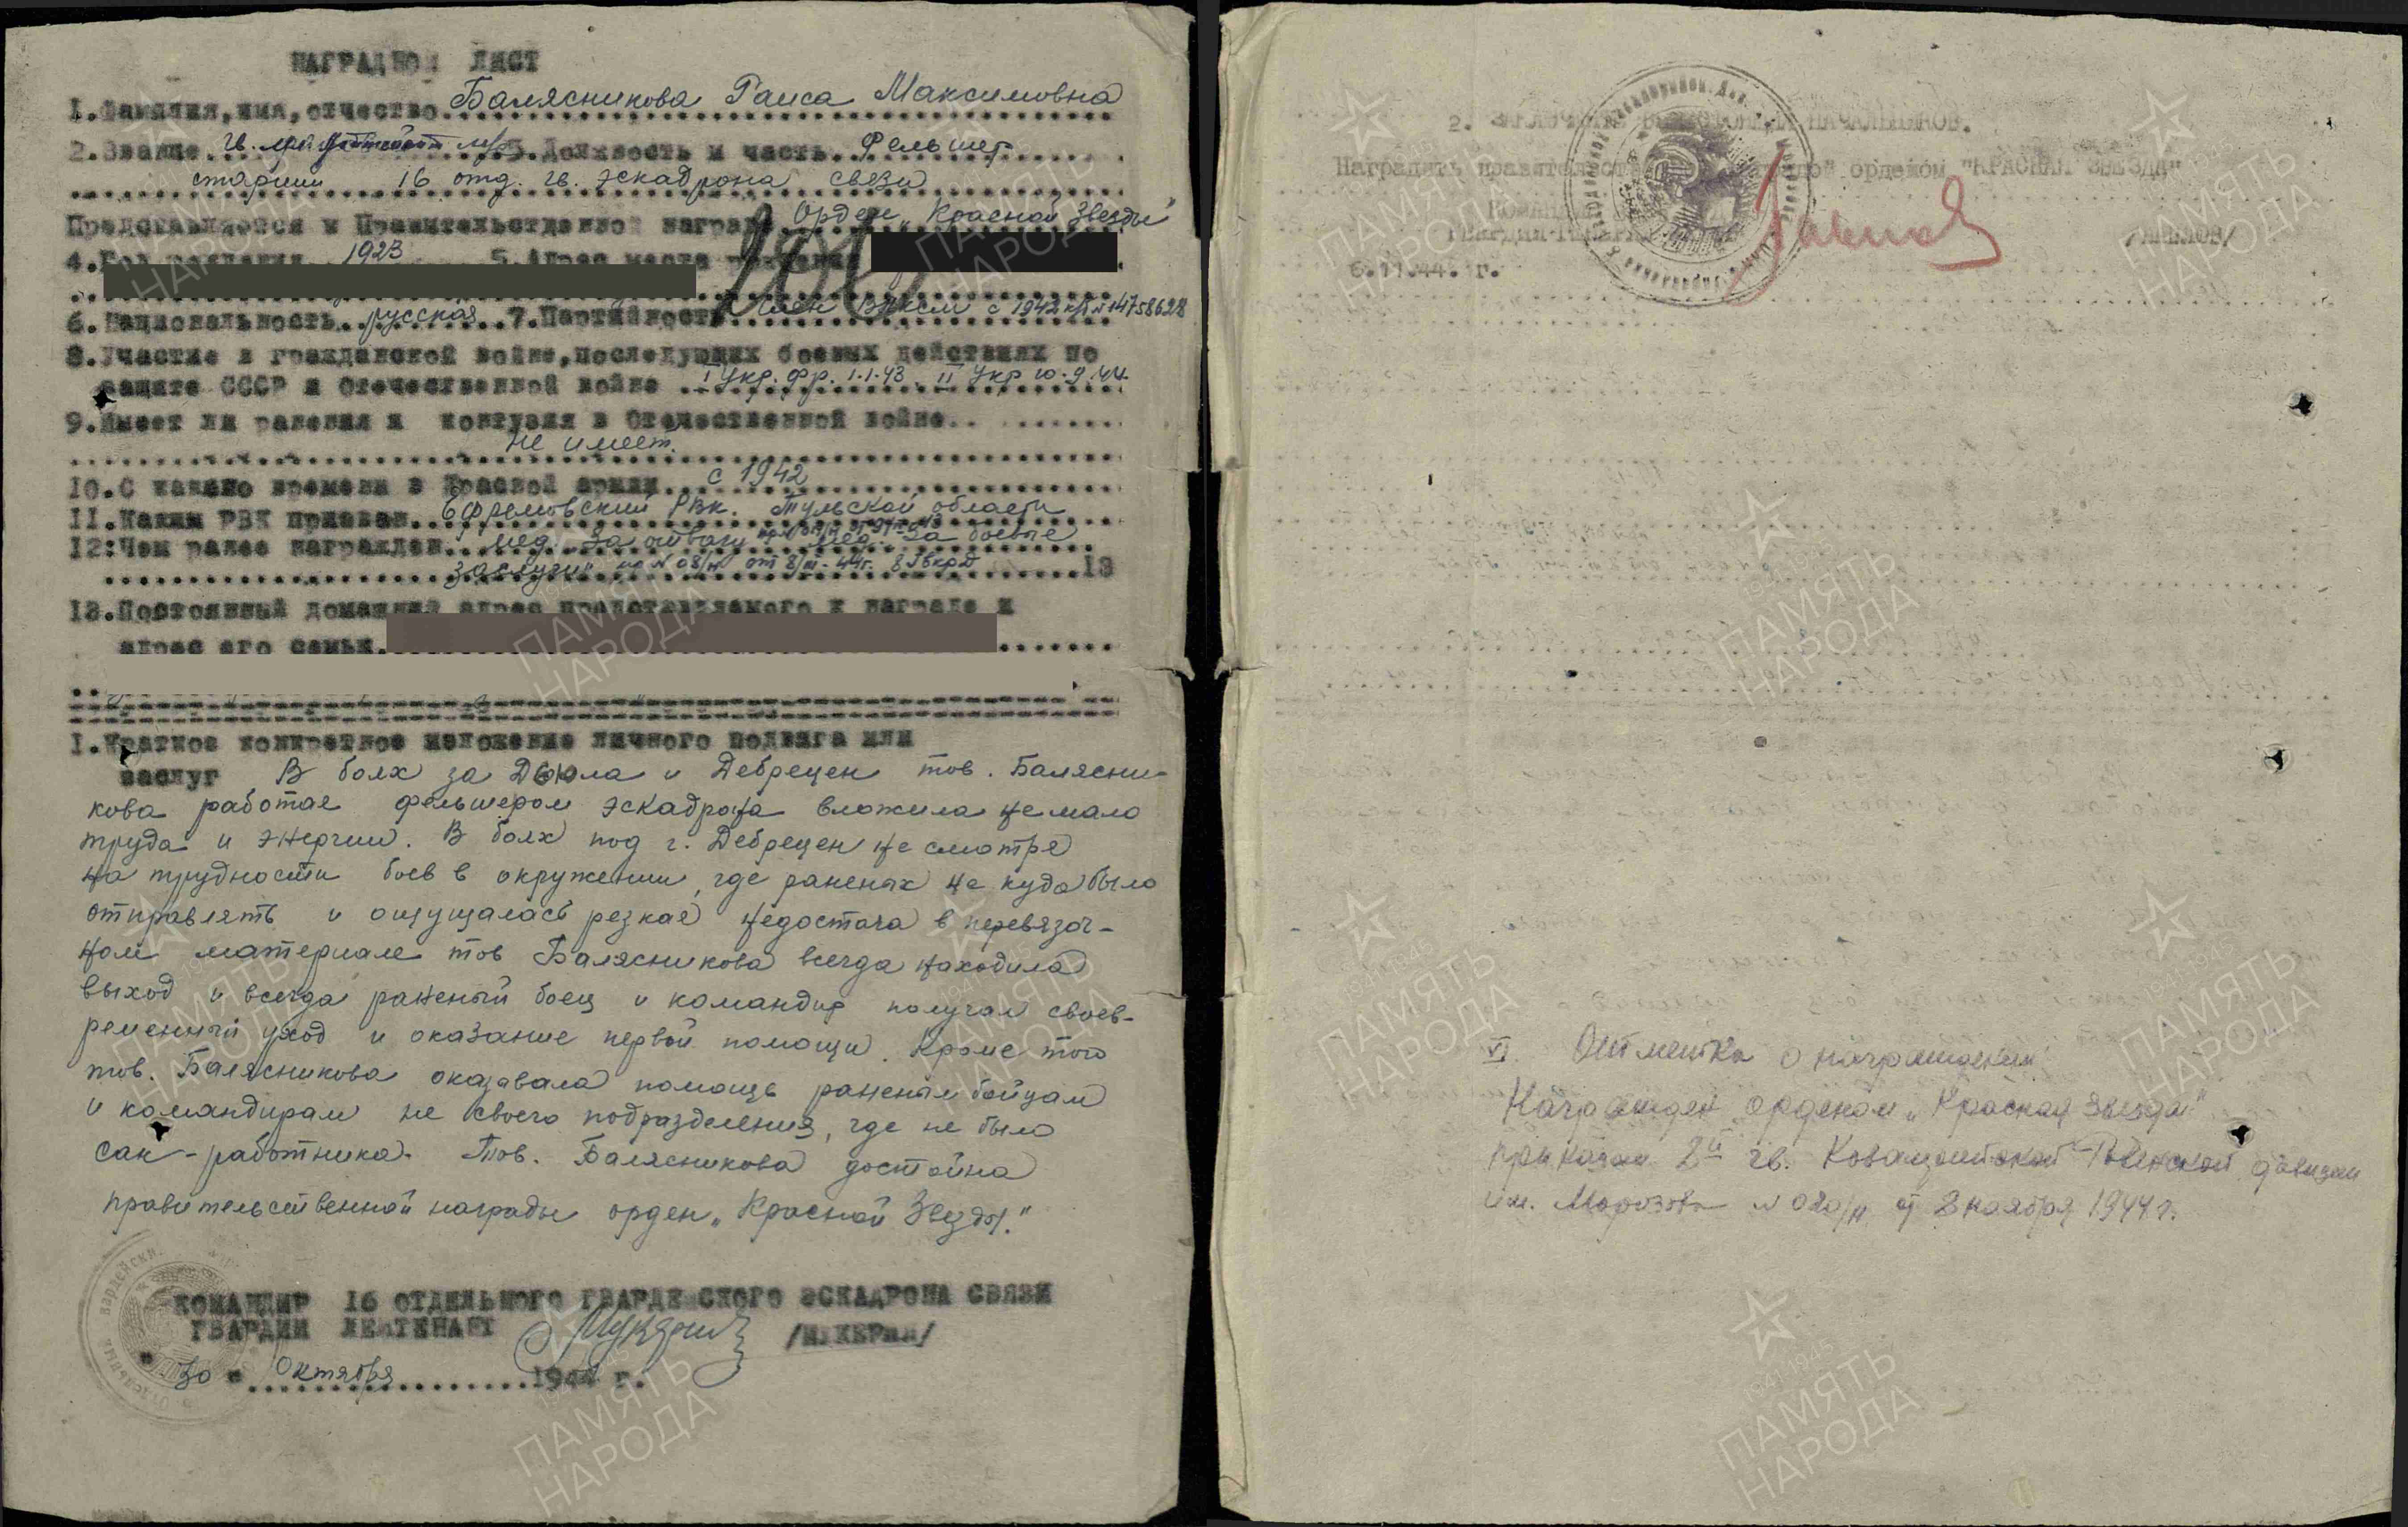 НАГРАДНОЙ ЛИСТ
1.Фамилия,имя,отчество Балясникова Раиса Максимовна
2.Звание гв. лейтенант м/с 3.Должность и часть Фельшер
старший 16 отд. гв. эскадрона связи
Представляется к Правительственной награде Орден „Красной Звезды"
4.Год рождения 1923 5.Адрес места
6.Национальность русская 7.Партийность член ВЛКСМ с 1942 к/б №14758628
8.Участие в гражданской войне,последующих боевых действиях по
защите СССР и Отечественной войне I Укр. фр. 1.1.43 II Укр 10.9.44
9.Имеет ли ранения и контузии в Отечественной войне
не имеет.
10.С какого времени в Красной армии с 1942
11.Каким РВК призван Ефремовский РВК. Тульской области
12:Чем ранее награжден мед. За отвагу мед „За боевые
заслуги" пр № 08/н от 8/III-44г. 8 гвкрд 13
13.Постоянный домашний адрес представляемого к награде и
адрес его семьи
1.Краткое конкретное изложение личного подвига или
заслуг В боях за Дьюла и Дебрецен тов. Балясни-
кова работая фельшером эскадрона вложила не мало
труда и энергии. В боях под г. Дебрецен не смотря
на трудности боев в окружении, где раненых не куда было
отправлять и ощущалась резкая недостача в перевязоч-
ном материале тов Балясникова всегда находила
выход и всегда раненый боец и командир получал своев-
ременный уход и оказание первой помощи. Кроме того
тов. Балясникова оказавала помощь раненым бойцам
и командирам не своего подразделения, где не было
сан-работника. Тов. Балясникова достойна
правительственной награды орден „Красной Звезды."
КОМАНДИР 16 ОТДЕЛЬНОГО ГВАРДЕЙСКОГО ЭСКАДРОНА СВЯЗИ
ГВАРДИИ ЛЕЙТЕНАНТ
"30" Октября 1944 г.
2. ЗАКЛЮЧЕНИЕ ВЫШЕСТОЯЩИХ НАЧАЛЬНИКОВ.
Наградить правительственной наградой орденом "КРАСНАЯ ЗВЕЗДА"
/ПАВЛОВ/
6.11.44. г.
VI. Отметка о награждении
Награжден орденом „Красная Звезда"
приказом 8й гв. Ровенской дивизии
им. Морозова № 020/н от 8 ноября 1944 г.
ПАМЯТЬ
НАРОДА
1941-1945